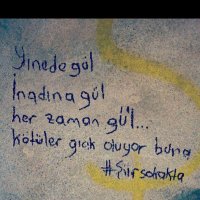 Yinede gül
İnadına gül
her zaman gül...
kötüler gıcık oluyor buna
#Şiirsokakta